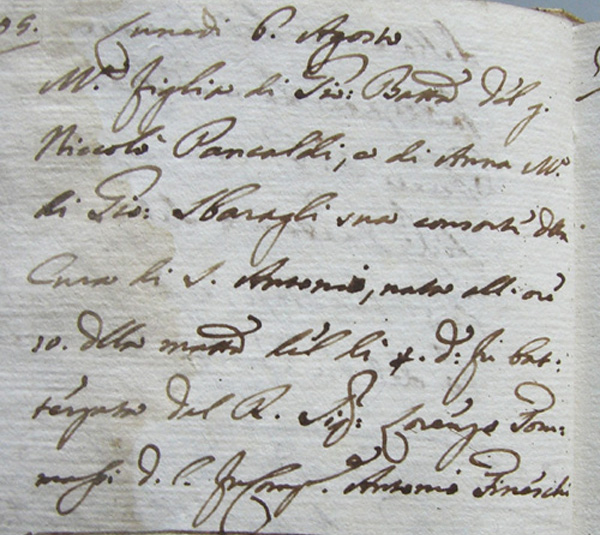 95.
Lunedi 6. Agosto
M.ª figlia di Gio: Batta del q.
Niccolò Pancaldi, e di Anna M.ª
di Gio: Sbaragli sua consorte della
Cura di S. Antonio, nata all'ore
10. della matta del li d.º fu bat:
tezzata dal R. Sig.: Lorenzo Tom:
massi d. C. fu Comp. Antonio Fineschi